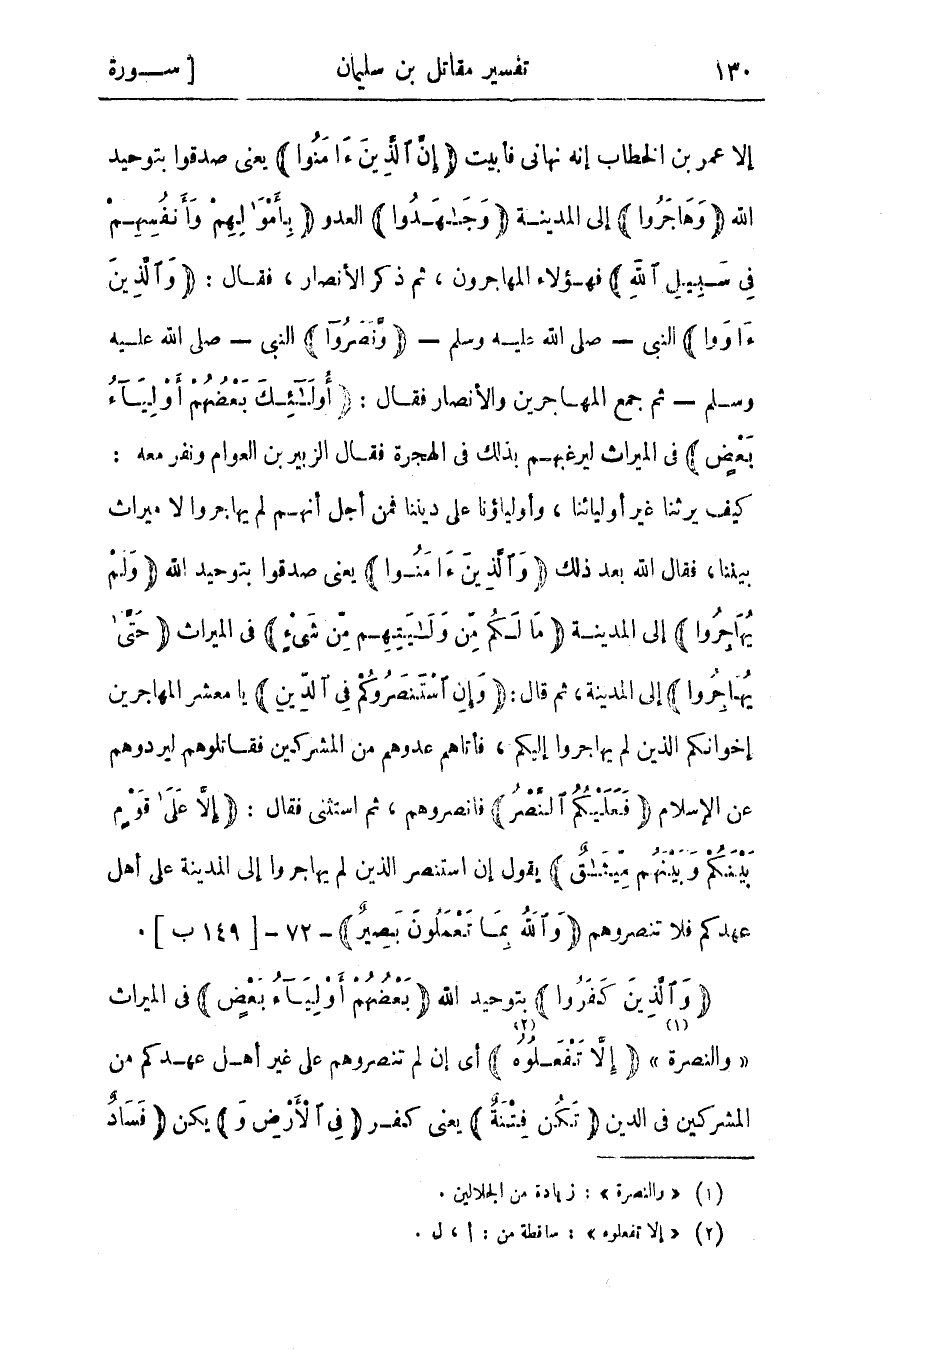 ١٣٠ تفسير مقاتل بن سليمان [ ســورة
إلا عمر بن الخطاب إنه نهانى فأبيت ﴿ إِنَّ ٱلَّذِينَ ءَامَنُوا ﴾ يعنى صدقوا بتوحيد
الله ﴿ وَهَاجَرُوا ﴾ إلى المدينــة ﴿ وَجَـٰهَدُوا ﴾ العدو ﴿ بِأَمْوَٰلِهِمْ وَأَنفُسِهِـمْ
فِى سَـبِيـلِ ٱللَّهِ ﴾ فهـؤلاء المهاجرون ، ثم ذكر الأنصار ، فقـال : ﴿ وَٱلَّذِينَ
ءَاوَوا ﴾ النبى — صلى الله عليـه وسلم — ﴿ وَّنَصَرُوٓا ﴾ النبى — صلى الله عليـه
وسـلم — ثم جمع المهـاجرين والأنصار فقـال : ﴿ أُولَـٰٓئِـكَ بَعْضُهُمْ أَوْلِيَـآءُ
بَعْضٍ ﴾ فى الميراث ليرغبهـم بذلك فى الهجرة فقـال الزبير بن العوام ونفر معه :
كيف يرثنا غير أوليائنا ، وأولياؤنا على ديننا فمن أجل أنهـم لم يهاجروا لا ميراث
بيننا، فقال الله بعد ذلك ﴿ وَٱلَّذِينَ ءَامَنُـوا ﴾ يعنى صدقوا بتوحيد الله ﴿ وَلَمْ
يُهَاجِرُوا ﴾ إلى المدينــة ﴿ مَا لَـكُم مِّن وَلَـٰيَتِهِـم مِّن شَىْءٍ ﴾ فى الميراث ﴿ حَتَّىٰ
يُهَاجِرُوا ﴾ إلى المدينة، ثم قال: ﴿ وَإِنِ ٱسْتَنصَرُوكُمْ فِى ٱلدِّينِ ﴾ يا معشر المهاجرين
إخوانكم الذين لم يهاجروا إليكم ، فأتاهم عدوهم من المشركين فقـاتلوهم ليردوهم
عن الإسلام ﴿ فَعَلَيْكُمُ ٱلنَّصْرُ ﴾ فانصروهم ، ثم استثنى فقال : ﴿ إِلَّا عَلَىٰ قَوْمٍ
بَيْنَكُمْ وَبَيْنَهُم مِّيثَـٰقٌ ﴾ يقول إن استنصر الذين لم يهاجروا إلى المدينة على أهل
عهدكم فلا تنصروهم ﴿ وَٱللَّهُ بِمَـا تَعْمَلُونَ بَصِيرٌ ﴾ - ٧٢ - [ ١٤٩ ب ] .
﴿ وَٱلَّذِينَ كَفَرُوا ﴾ بتوحيد الله ﴿ بَعْضُهُمْ أَوْلِيَـآءُ بَعْضٍ ﴾ فى الميراث
« والنصرة »(١) ﴿ إِلَّا تَفْعَـلُوهُ(٢) ﴾ أى إن لم تنصروهم على غير أهـل عهـدكم من
المشركين فى الدين ﴿ تَكُن فِتْنَةٌ ﴾ يعنى كفـر ﴿ فِى ٱلْأَرْضِ وَ ﴾ يكن ﴿ فَسَادٌ
(١) « والنصرة » : زيادة من الجلالين .
(٢) « إلا تفعلوه » : ساقطة من : أ ، ل .